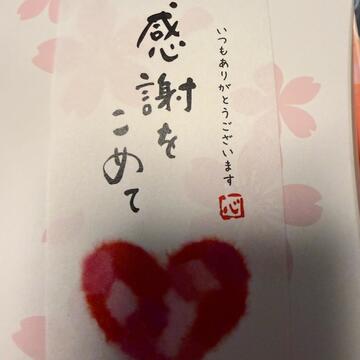 感謝を
こめて
いつもありがとうございます
心